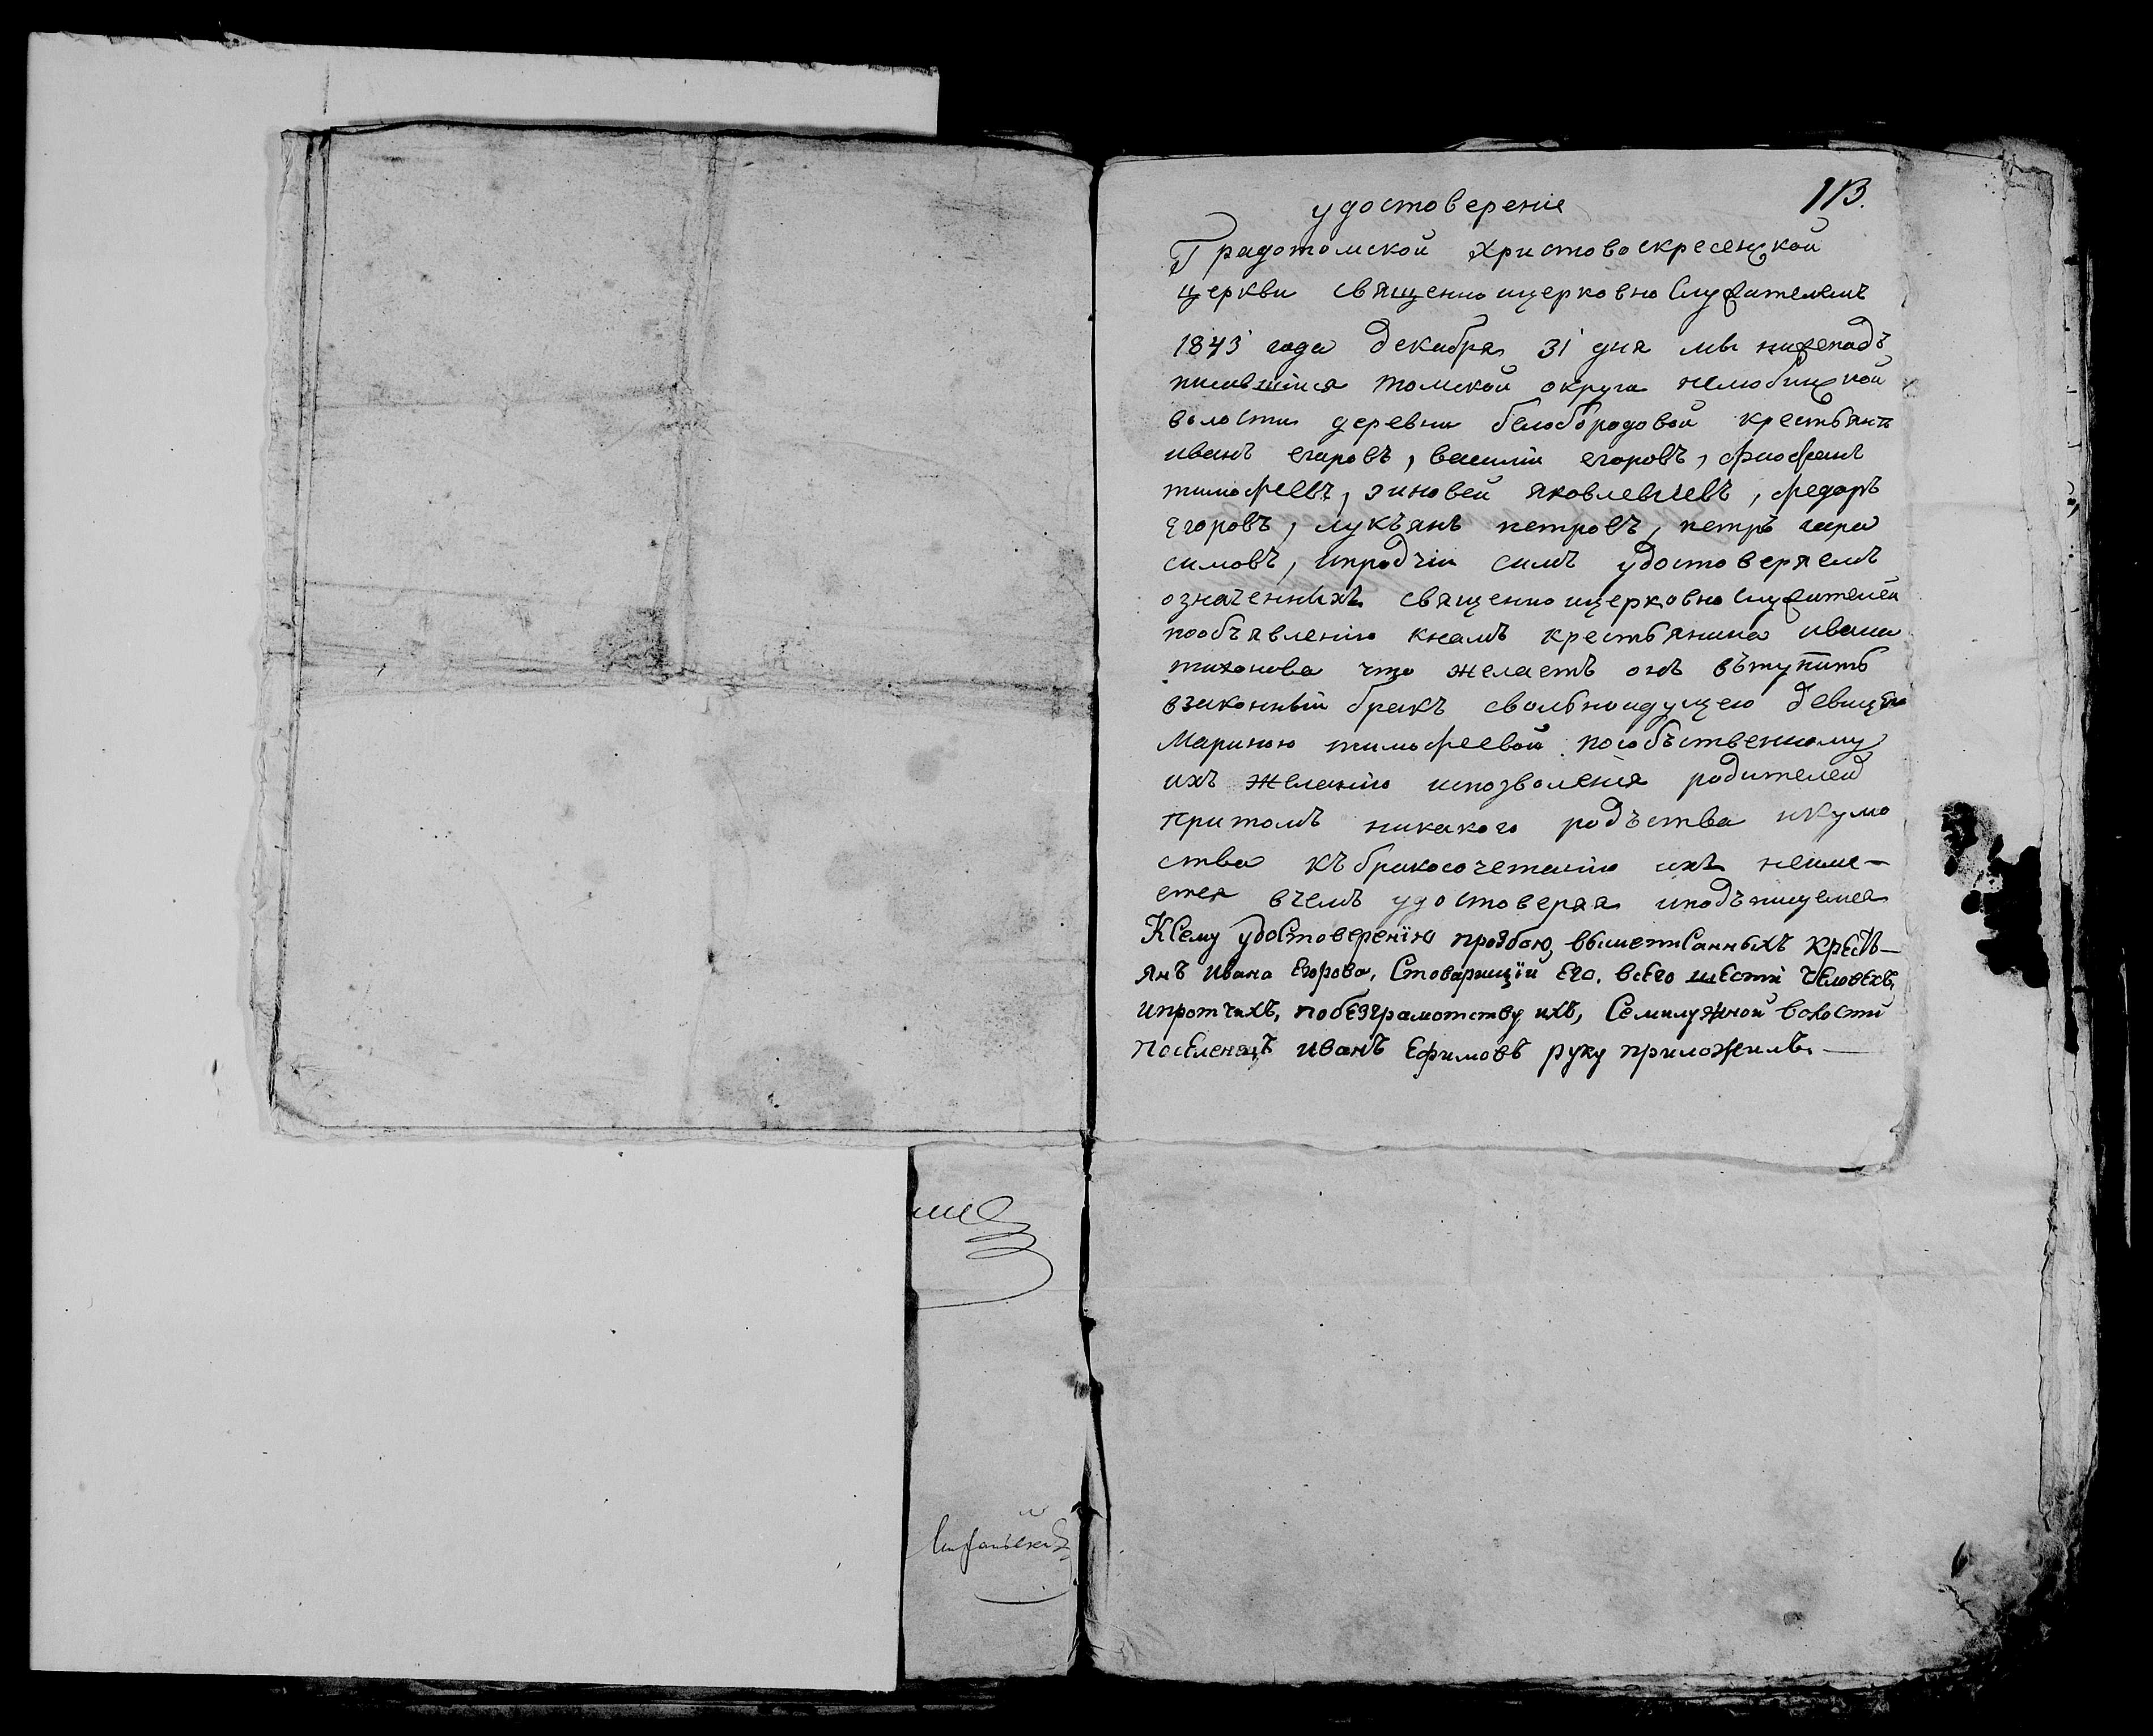 113.
удостоверение
Градотомской христовоскресенской
церкви священноицерковно служителемъ
1843 года декабря 31 дня мы нижеподъ
писавшиися томской округи нелюбинской
волости деревни белобородовой крестьяне
иванъ егоровъ, василии егоровъ, фиофанъ
тимофеевъ, зиновеи яковлевъ, федоръ
егоровъ, лукъянъ петровъ, петръ гара
симовъ, ипродчии симъ удостоверяемъ
означенныхъ священноицерковно служителей
пообъявлению кнамъ крестьянина ивана
тихонова что желаетъ онъ въступить
взаконныи бракъ свольноидущею девицею
Мариною тимофеевой пособъственному
ихъ желанию ипозволения родителей
притомъ никакого родъства икумо
ства къбракосочетанию ихъ неиме-
ется вчемъ удостоверяя иподъпищемся
Ксему удостоверенїю прозбою, вышеписанныхъ кресть-
янъ Ивана Егорова, Стоварищїи его, всего шести человекъ,
ипротчихъ, побезграмотству ихъ, Семилужной волости
поселенецъ иванъ Ефимовъ руку приложилъ. —